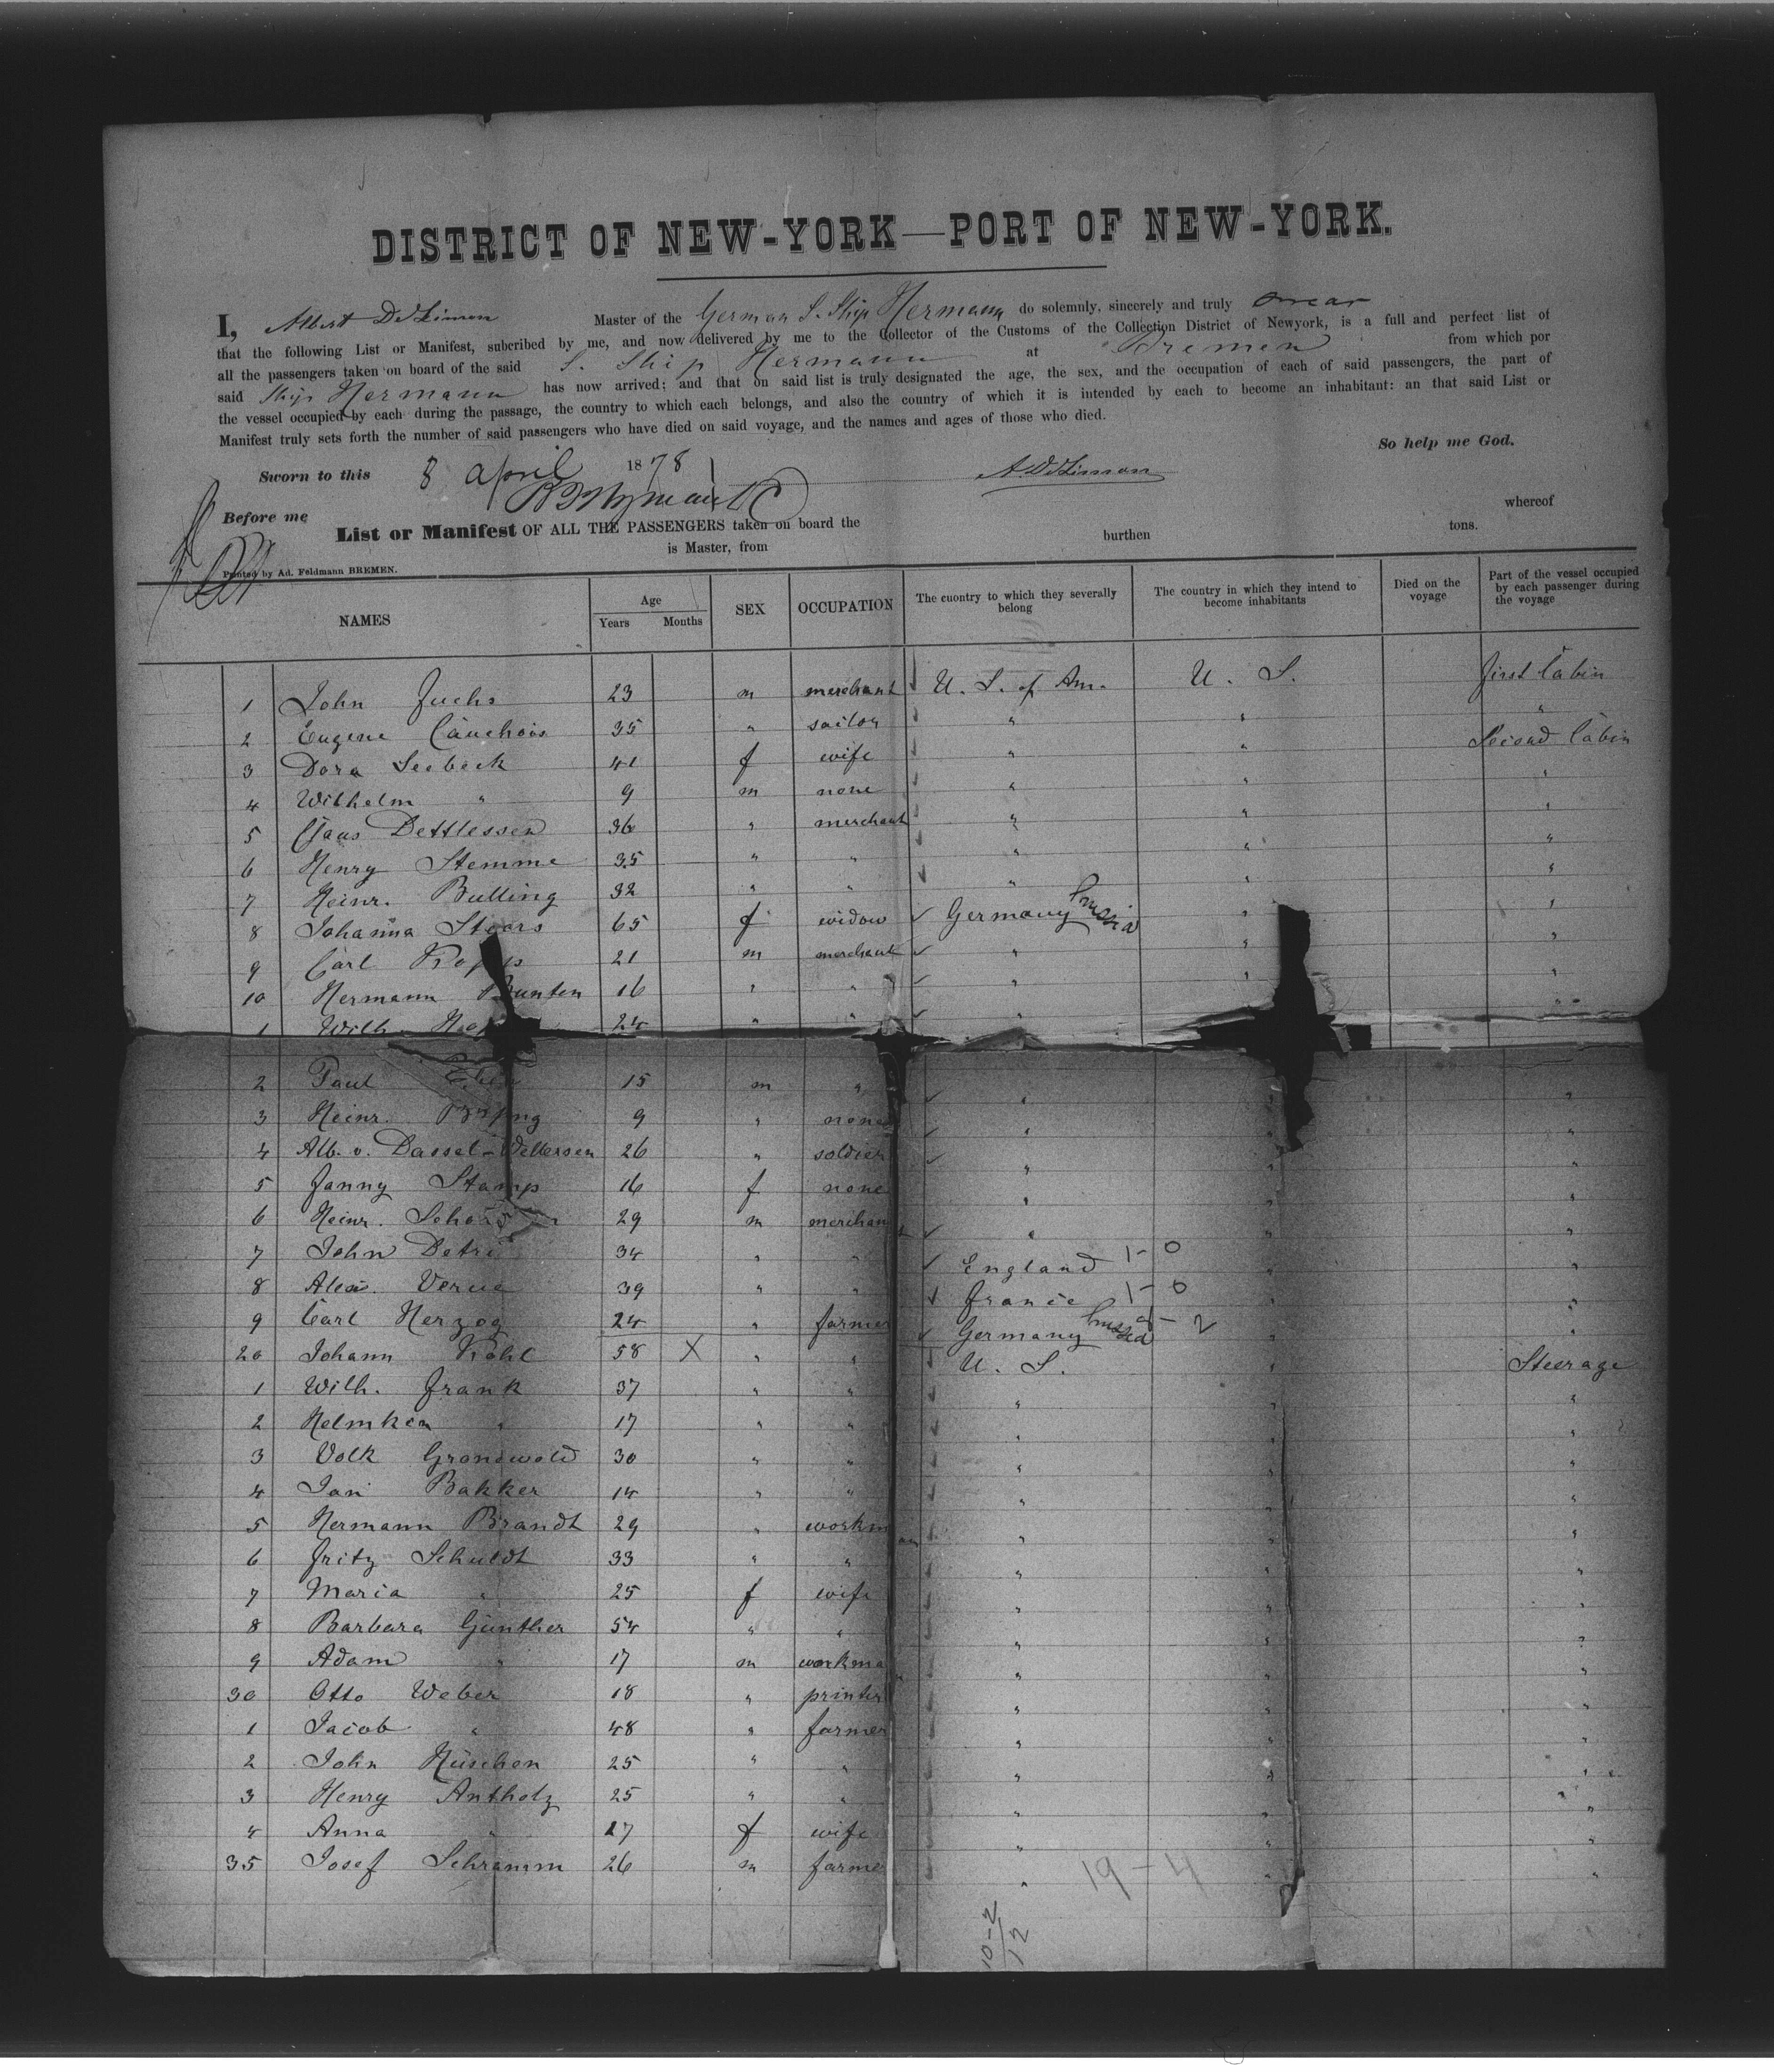 DISTRICT OF NEW-YORK—PORT OF NEW-YORK.
I, Albert Master of the German S. Ship Hermann do solemnly, sincerely and truly swear
that the following List or Manifest, subcribed by me, and now delivered by me to the Collector of the Customs of the Collection District of Newyork, is a full and perfect list of
all the passengers taken on board of the said S. Ship Hermann at Bremen from which por
said Ship Hermann has now arrived; and that on said list is truly designated the age, the sex, and the occupation of each of said passengers, the part of
the vessel occupied by each during the passage, the country to which each belongs, and also the country of which it is intended by each to become an inhabitant: an that said List or
Manifest truly sets forth the number of said passengers who have died on said voyage, and the names and ages of those who died.
So help me God.
Sworn to this 8 April 1878
Before me
List or Manifest OF ALL THE PASSENGERS taken on board the whereof
is Master, from burthen tons.
Printed by Ad. Feldmann BREMEN.
NAMES Age Years Months SEX OCCUPATION The cuontry to which they severally belong The country in which they intend to become inhabitants Died on the voyage Part of the vessel occupied by each passenger during the voyage
1 John Fuchs 23 m merchant U. S. of Am. U. S. First Cabin
2 Eugene Cauchois 35 " sailor " " "
3 Dora Seebeck 41 f wife " " Second Cabin
4 Wilhelm " 9 m none " " "
5 Claus Dettlessen 36 " merchant " " "
6 Henry Stemme 35 " " " " "
7 Heinr. Bulling 32 " " " " "
8 Johanna Steers 65 f widow Germany Prussia " "
9 Carl 21 m merchant " " "
10 Hermann Bunten 16 " " " " "
1 Wilh. 24 " " " "
2 Paul 15 m " " " "
3 Heinr. 9 " none " " "
4 Alb. v. Dassel-Wellersen 26 " soldier " " "
5 Fanny Stamp 16 f none " " "
6 Heinr. 29 m merchant " " "
7 John 34 " " England 1-0 " "
8 Alex. Verue 39 " " France 1-0 " "
9 Carl Herzog 24 " farmer Germany Prussia 9-2 " "
20 Johann Kohl 58 X " " U. S. " Steerage
1 Wilh. Frank 37 " " " " "
2 Helmken " 17 " " " " "
3 Volk Gronewold 30 " " " " "
4 Jan Bakker 14 " " " " "
5 Hermann Brandt 29 " workman " " "
6 Fritz Schuldt 33 " " " " "
7 Maria " 25 f wife " " "
8 Barbara Günther 54 " " " " "
9 Adam " 17 m workman " " "
30 Otto Weber 18 " printer " " "
1 Jacob " 48 " farmer " " "
2 John Hüschen 25 " " " " "
3 Henry Antholz 25 " " " " "
4 Anna " 27 f wife " " "
35 Josef Schramm 26 m farmer " " "
19-4
10-2
12